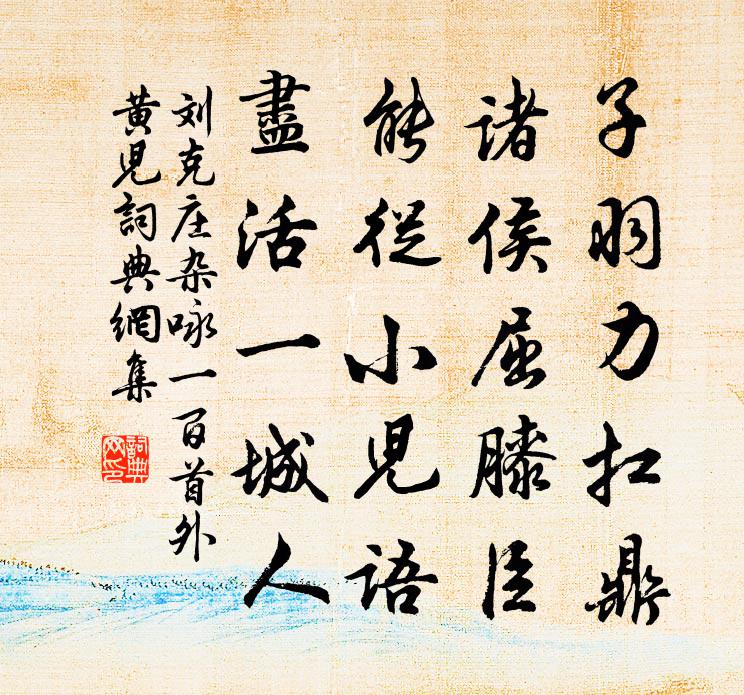 子羽力扛鼎
诸侯屈膝臣
能从小儿语
盡活一城人
刘克庄杂咏一百首外
黄児詞典網集
詞典